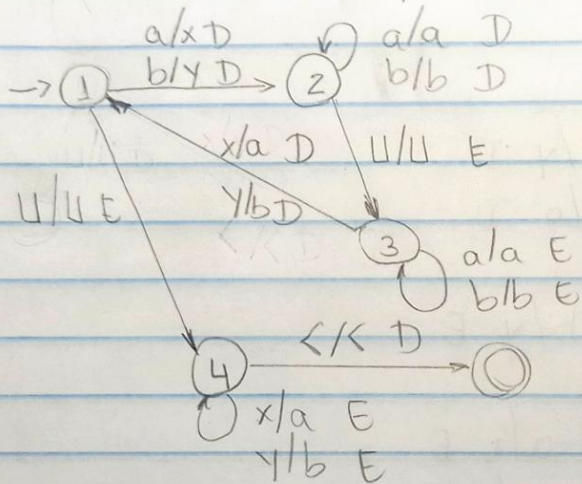 a/x D
b/y D
a/a D
b/b D
→ 1
2
x/a D
y/b D
⊔/⊔ E
⊔/⊔ E
3
a/a E
b/b E
4
</< D
x/a E
y/b E